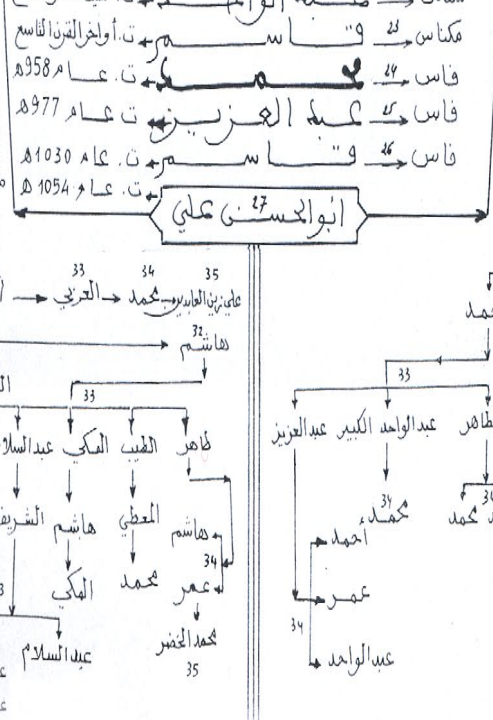 مكناس 23 قاسم ت. أواخر القرن التاسع
فاس 24 محمد ت. عام 958هـ
فاس 25 عبد العزيز ت عام 977هـ
فاس 26 قاسم ت. عام 1030هـ
ت. عام 1054هـ
27 ابو الحسن علي
35 34 33
علي زين العابدين محمد العربي
32
هاشم
33
طاهر الطيب المكي عبد السلام
هاشم المعطي هاشم الشريف
34
عمر محمد المكي
محمد الخضر عبد السلام
35
33
الطاهر عبد الواحد الكبير عبد العزيز
34
محمد محمد
أحمد
عمر
34
عبد الواحد